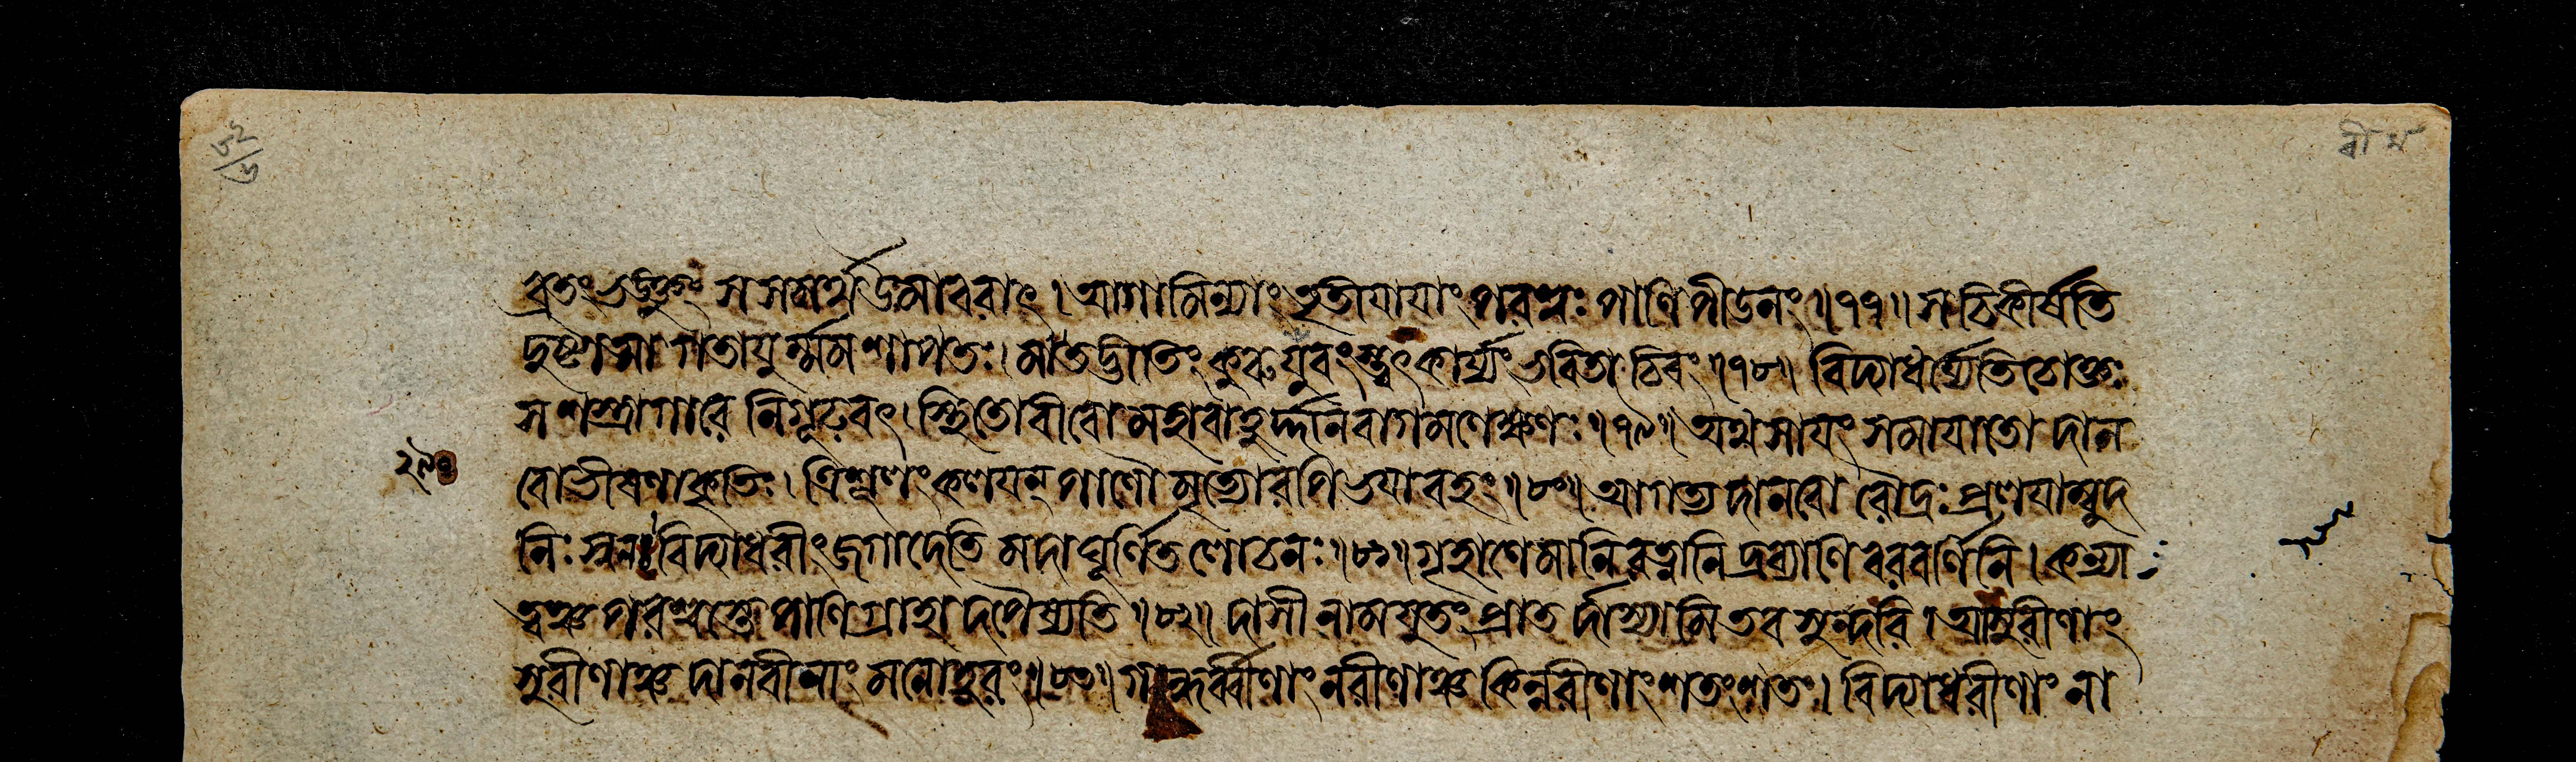 ব্রতং ভঙ্ক্তুং স সমর্থ উমাবরাৎ । আগামিন্যাং তৃতীয়ায়াং পরশ্বঃ পাণিপীডনং ॥ ৭৭ ॥ স চিকীর্ষতি
দুষ্টাত্মা গতায়ুর্ম্মম শাপতঃ । মা তদ্ভীতিং কুরু যুবংস্ত্বৎকার্য্যং ভবিতা চিরং ॥ ৭৮ ॥ বিদ্যাধর্য্যেতি চোক্তঃ
স শস্ত্রাগারে নিগূঢ়বৎ । স্থিতো বীরো মহাবাহুর্দ্দানবাগমণেক্ষণঃ ॥ ৭৯ ॥ অথ সায়ং সমায়াতো দান
বো ভীষণাকৃতিঃ । ত্রিশূলং কলয়ন্ পাণৌ মৃত্যোরপি ভয়াবহং ॥ ৮০ ॥ আগত্য দানবো রৌদ্রঃ প্রলয়াম্বুদ
নিঃস্বনঃ বিদ্যাধরীং জগাদেতি মদাঘূর্ণিতলোচনঃ ॥ ৮১ ॥ গৃহাণেমানি রত্নানি দ্রব্যাণি বরবর্ণিনি । কন্যা
ত্বঞ্চ পরশ্বস্তে পাণিগ্রাহাদপৈষ্যতি ॥ ৮২ ॥ দাসীনামযুতং প্রাতর্দাস্যামি তব সুন্দরি । আসুরীণাং
সুরীণাঞ্চ দানবীনাং মনোহরং ॥ ৮৩ ॥ গন্ধর্ব্বীণাং নরীণাঞ্চ কিন্নরীণাং শতং শতং । বিদ্যাধরীণাং না